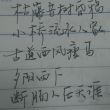 枯藤老树昏鸦
小桥流水人家
古道西风瘦马
夕阳西下
断肠人在天涯